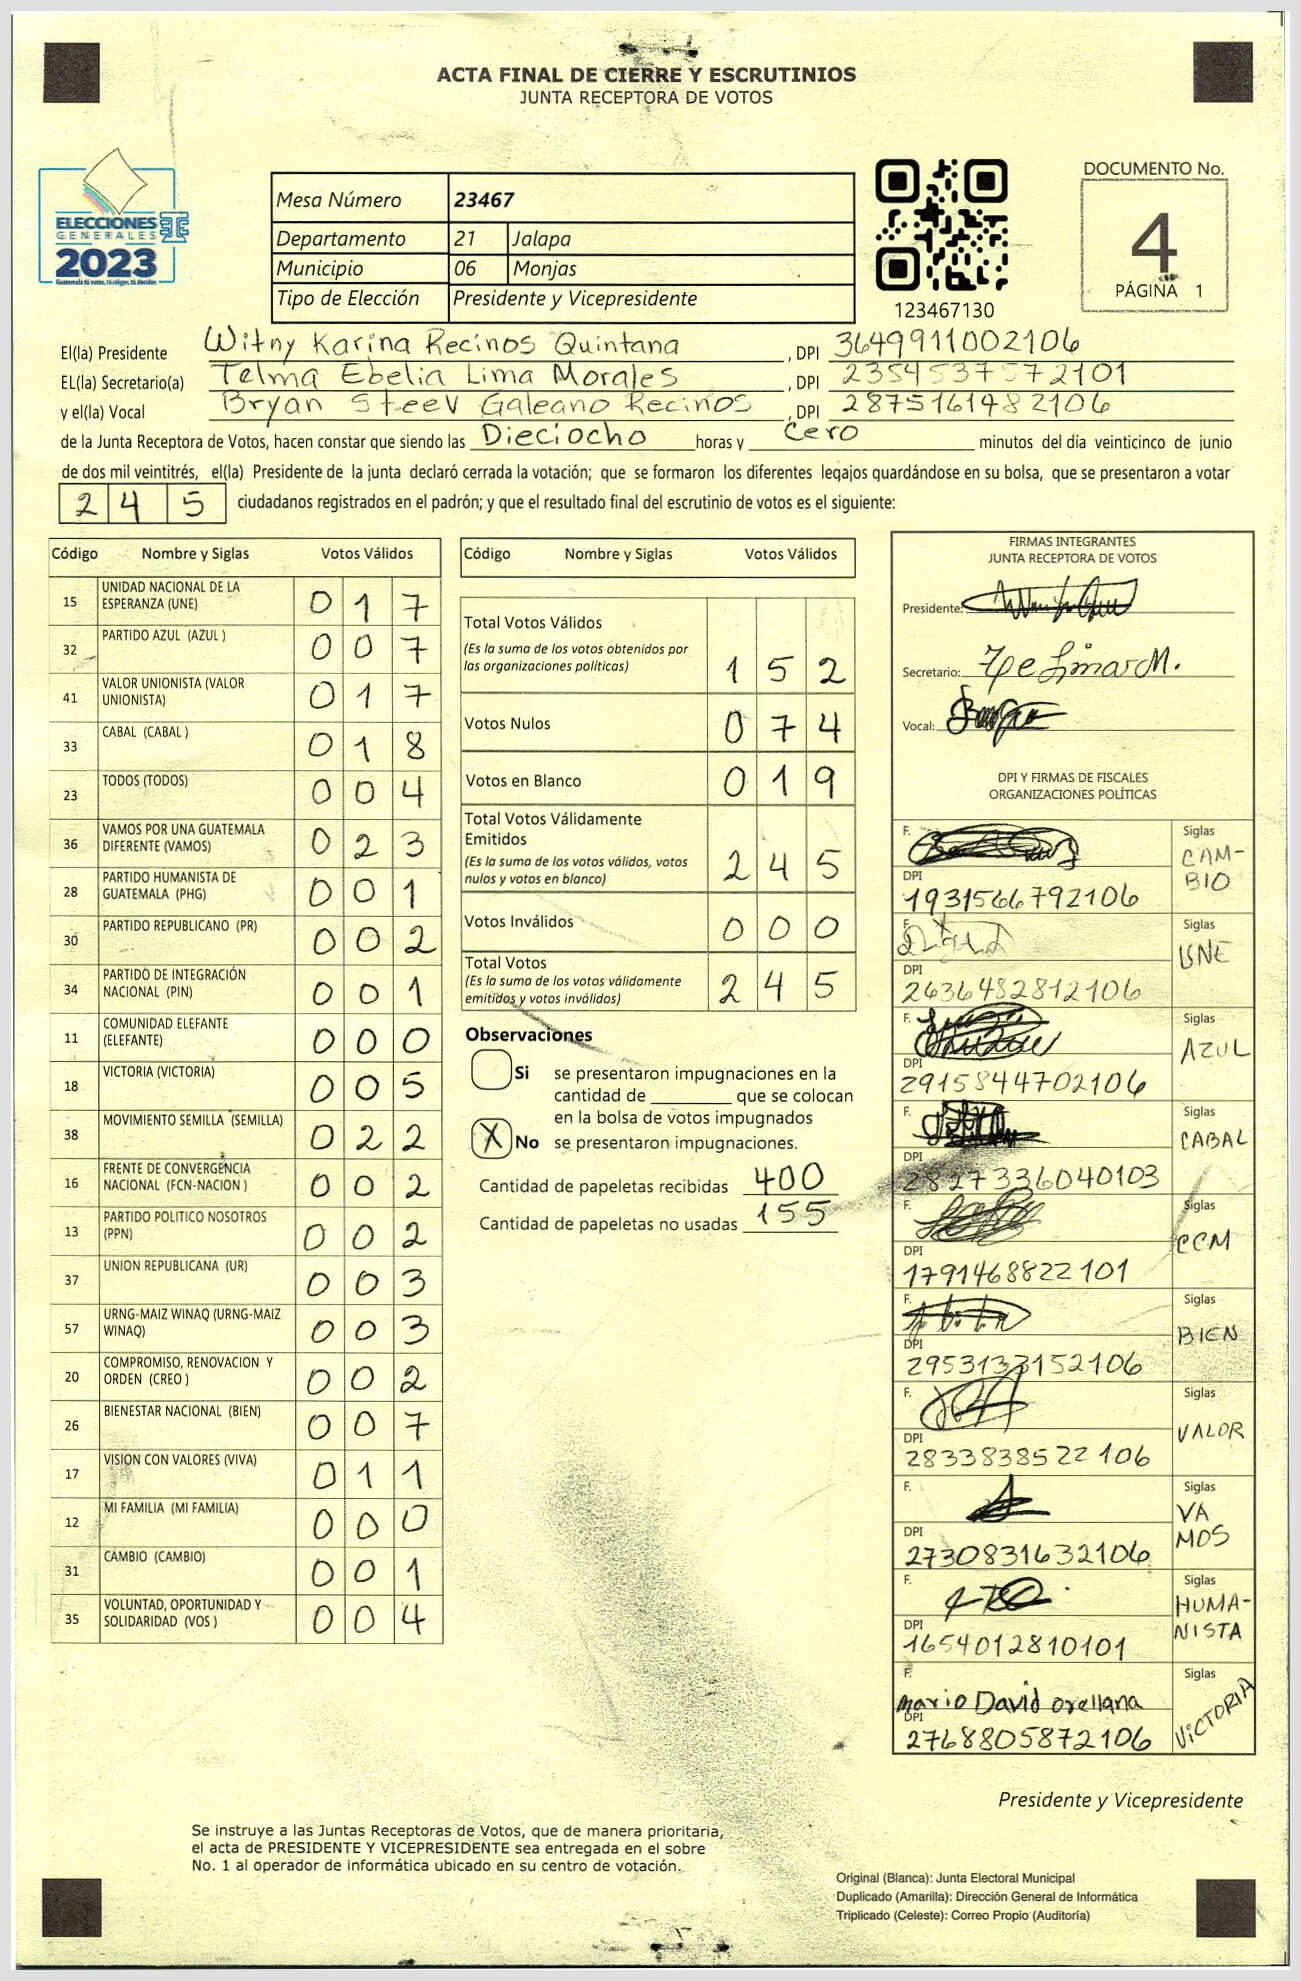 ACTA FINAL DE CIERRE Y ESCRUTINIOS
JUNTA RECEPTORA DE VOTOS
ELECCIONES
GENERALES
2023
Guatemala tú votas, tú eliges, tú decides
Mesa Número 23467
Departamento 21 Jalapa
Municipio 06 Monjas
Tipo de Elección Presidente y Vicepresidente
123467130
DOCUMENTO No.
4
PÁGINA 1
El(la) Presidente Witny Karina Recinos Quintana , DPI 3649911002106
EL(la) Secretario(a) Telma Ebelia Lima Morales , DPI 2354537572101
y el(la) Vocal Bryan Steev Galeano Recinos , DPI 2875161482106
de la Junta Receptora de Votos, hacen constar que siendo las Dieciocho horas y Cero minutos del día veinticinco de junio
de dos mil veintitrés, el(la) Presidente de la junta declaró cerrada la votación; que se formaron los diferentes legajos quardándose en su bolsa, que se presentaron a votar
2 4 5 ciudadanos registrados en el padrón; y que el resultado final del escrutinio de votos es el siguiente:
Código Nombre y Siglas Votos Válidos
15 UNIDAD NACIONAL DE LA ESPERANZA (UNE) 0 1 7
32 PARTIDO AZUL (AZUL ) 0 0 7
41 VALOR UNIONISTA (VALOR UNIONISTA) 0 1 7
33 CABAL (CABAL ) 0 1 8
23 TODOS (TODOS) 0 0 4
36 VAMOS POR UNA GUATEMALA DIFERENTE (VAMOS) 0 2 3
28 PARTIDO HUMANISTA DE GUATEMALA (PHG) 0 0 1
30 PARTIDO REPUBLICANO (PR) 0 0 2
34 PARTIDO DE INTEGRACIÓN NACIONAL (PIN) 0 0 1
11 COMUNIDAD ELEFANTE (ELEFANTE) 0 0 0
18 VICTORIA (VICTORIA) 0 0 5
38 MOVIMIENTO SEMILLA (SEMILLA) 0 2 2
16 FRENTE DE CONVERGENCIA NACIONAL (FCN-NACION ) 0 0 2
13 PARTIDO POLITICO NOSOTROS (PPN) 0 0 2
37 UNION REPUBLICANA (UR) 0 0 3
57 URNG-MAIZ WINAQ (URNG-MAIZ WINAQ) 0 0 3
20 COMPROMISO, RENOVACION Y ORDEN (CREO ) 0 0 2
26 BIENESTAR NACIONAL (BIEN) 0 0 7
17 VISION CON VALORES (VIVA) 0 1 1
12 MI FAMILIA (MI FAMILIA) 0 0 0
31 CAMBIO (CAMBIO) 0 0 1
35 VOLUNTAD, OPORTUNIDAD Y SOLIDARIDAD (VOS ) 0 0 4
Código Nombre y Siglas Votos Válidos
Total Votos Válidos
(Es la suma de los votos obtenidos por
las organizaciones políticas) 1 5 2
Votos Nulos 0 7 4
Votos en Blanco 0 1 9
Total Votos Válidamente
Emitidos
(Es la suma de los votos válidos, votos
nulos y votos en blanco) 2 4 5
Votos Inválidos 0 0 0
Total Votos
(Es la suma de los votos válidamente
emitidos y votos inválidos) 2 4 5
Observaciones
Si se presentaron impugnaciones en la
cantidad de ________ que se colocan
en la bolsa de votos impugnados
X No se presentaron impugnaciones.
Cantidad de papeletas recibidas 400
Cantidad de papeletas no usadas 155
FIRMAS INTEGRANTES
JUNTA RECEPTORA DE VOTOS
Presidente:
Secretario:
Vocal:
DPI Y FIRMAS DE FISCALES
ORGANIZACIONES POLÍTICAS
F. Siglas
CAM-
BIO
DPI
1931566792106
F. Siglas
UNE
DPI
2636482812106
F. Siglas
AZUL
DPI
2915844702106
F. Siglas
CABAL
DPI
2827336040103
F. Siglas
CCM
DPI
1791468822101
F. Siglas
BIEN
DPI
2953133152106
F. Siglas
VALOR
DPI
2833838522106
F. Siglas
VA
MOS
DPI
2730831632106
F. Siglas
HUMA-
NISTA
DPI
1654012810101
F. Siglas
Mario David Orellana
VICTORIA
DPI
2768805872106
Presidente y Vicepresidente
Se instruye a las Juntas Receptoras de Votos, que de manera prioritaria,
el acta de PRESIDENTE Y VICEPRESIDENTE sea entregada en el sobre
No. 1 al operador de informática ubicado en su centro de votación.
Original (Blanca): Junta Electoral Municipal
Duplicado (Amarilla): Dirección General de Informática
Triplicado (Celeste): Correo Propio (Auditoría)